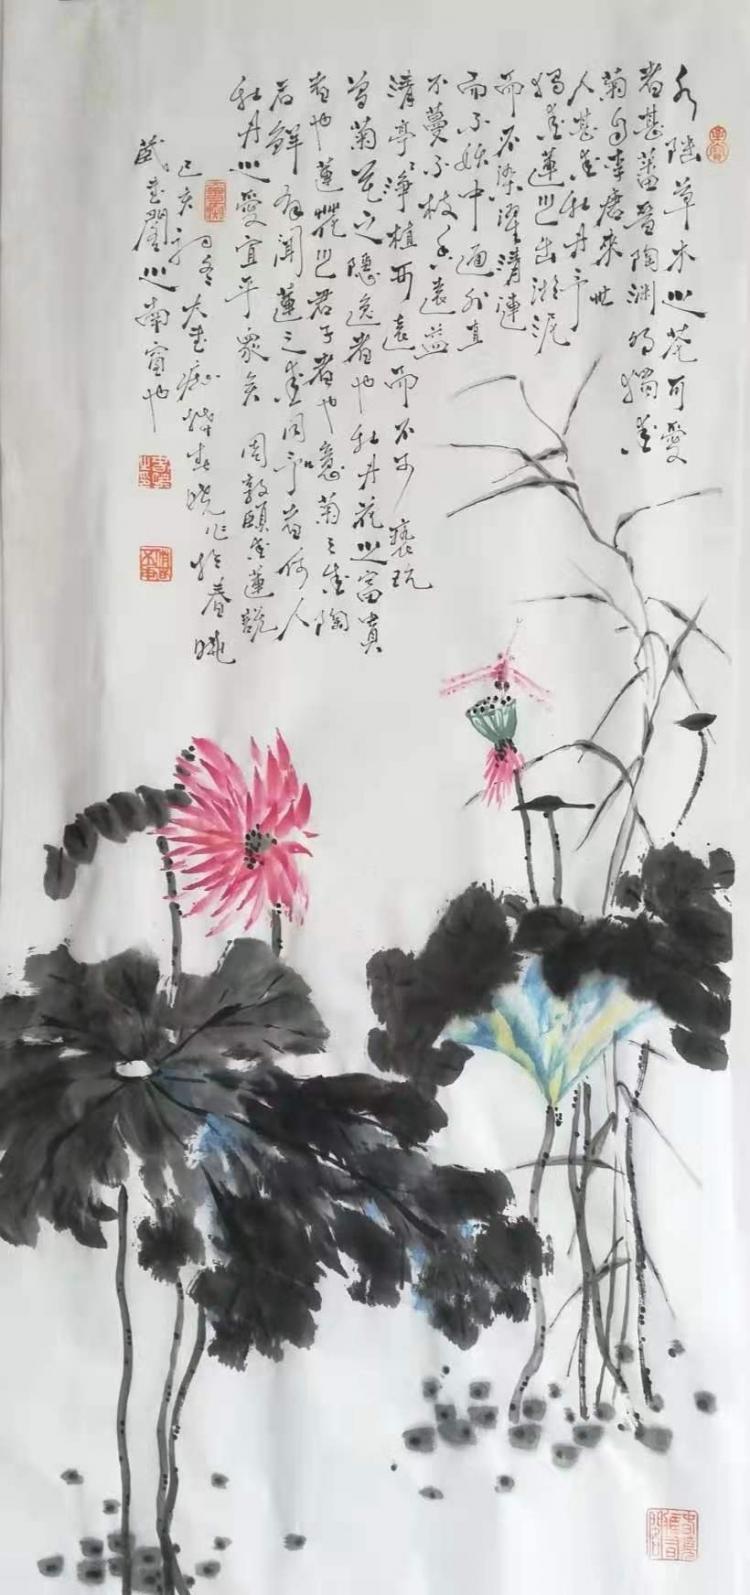 水陸草木之花可愛
者甚蕃晉陶淵明獨愛
菊自李唐來世
人甚愛牡丹予
獨愛蓮之出淤泥
而不染濯清漣
而不妖中通外直
不蔓不枝香遠益
清亭亭淨植可遠而不可褻玩
菊花之隱逸者也牡丹花之富貴
者也蓮花之君子者也噫菊之愛陶
后鮮有聞蓮之愛同予者何人
牡丹之愛宜乎眾矣 周敦頤愛蓮說
己亥初冬大 作於春曉
藏書閣之南窗也